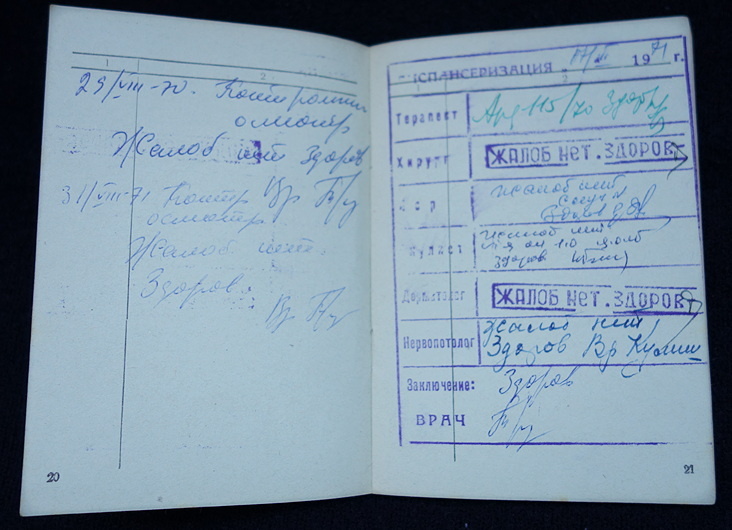 1
29/VIII-70. Контрольн
осмотр
Жалоб нет Здоров
31/VIII-71 Контр Вр
осмотр
Жалоб нет.
Здоров.
Вр
20
ДИСПАНСЕРИЗАЦИЯ 17/ 1971 г.
2
Терапевт Ард 115/70 Здоров
Хирург ЖАЛОБ НЕТ. ЗДОРОВ
Жалоб нет
Здоров
Окулист Жалоб нет
Здоров
Дерматолог ЖАЛОБ НЕТ. ЗДОРОВ
Жалоб нет
Нервопотолог Здоров Вр
Заключение: Здоров
ВРАЧ
21